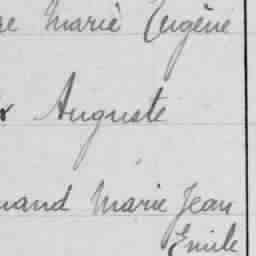 re Marie Eugène
x Auguste
mand Marie Jean
Emile